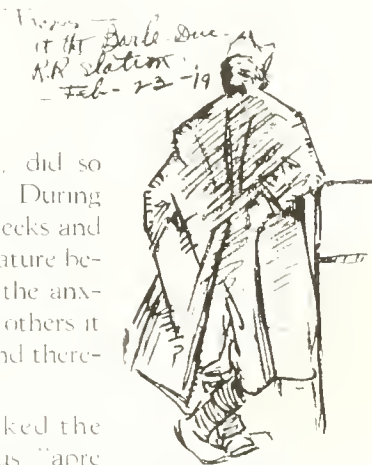 at the Barle Duc -
R.R. Station
- Feb - 23 - 19
did so
During
eeks and
ature be-
the anx-
others it
nd there-
ked the
us "apre